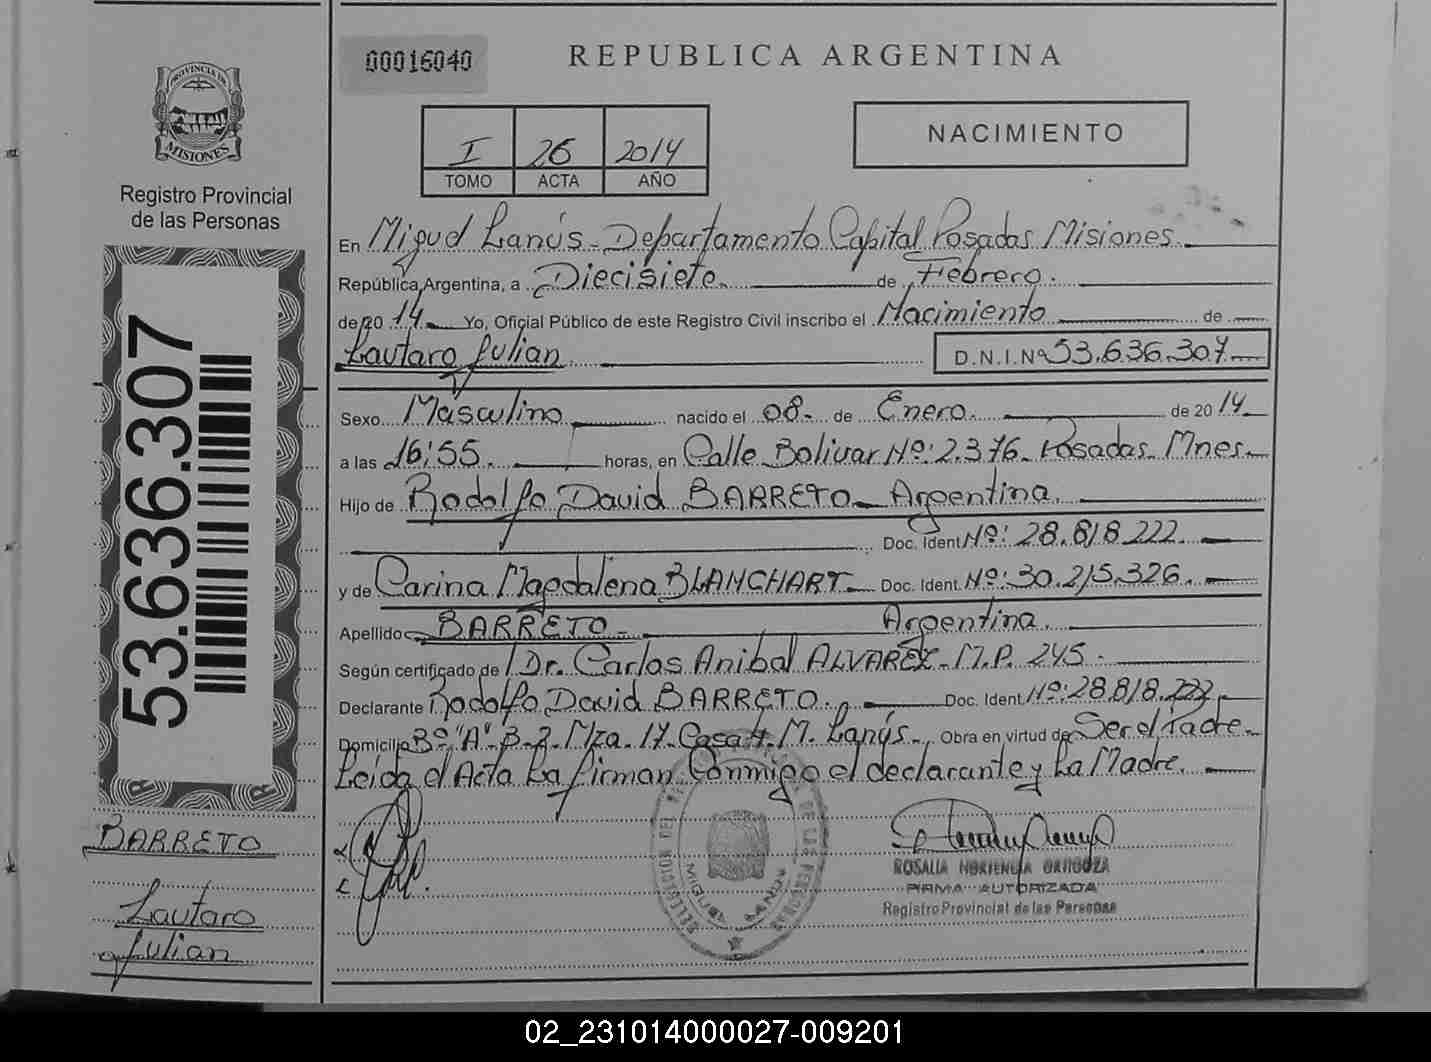 00016040
REPUBLICA ARGENTINA
PROVINCIA DE
MISIONES
Registro Provincial
de las Personas
I 26 2014
TOMO ACTA AÑO
NACIMIENTO
En Miguel Lanús - Departamento Capital Posadas Misiones.
República Argentina, a Diecisiete de Febrero.
de 20 14 Yo, Oficial Público de este Registro Civil inscribo el Nacimiento de
Lautaro Julian D.N.I. Nº 53.636.307
Sexo Masculino nacido el 08- de Enero. de 2014
a las 16:55. horas, en Calle Bolivar Nº: 2.376- Posadas- Mnes-
Hijo de Rodolfo David BARRETO- Argentina.
Doc. Ident. Nº: 28.818.222.
y de Carina Magdalena BLANCHART- Doc. Ident. Nº: 30.215.326.
Apellido BARRETO- Argentina.
Según certificado de Dr. Carlos Anibal ALVAREZ- M.P. 245.
Declarante Rodolfo David BARRETO. Doc. Ident. Nº: 28.818.222.
Domicilio Bº "A"-3-2-Mza-17-Casa 4. M. Lanús- Obra en virtud de Ser el Padre-
Leida el Acta La firman Conmigo el declarante y La Madre.
53.636.307
BARRETO
Lautaro
Julian
ROSALIA HORTENCIA
FIRMA AUTORIZADA
Registro Provincial de las Personas
DELEGACION DEL DE LAS PERSONAS
MIGUEL LANUS
02_231014000027-009201